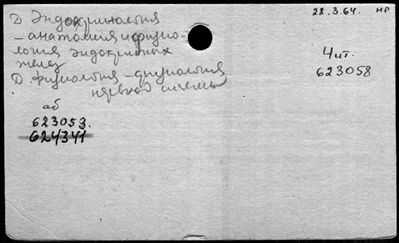 28.3.64. НР
D Эндокринология
- анатомия и физио-
логия эндокринных
желез
D физиология - физиология
нервной системы
Чит.
623058
аб
623053.
624341